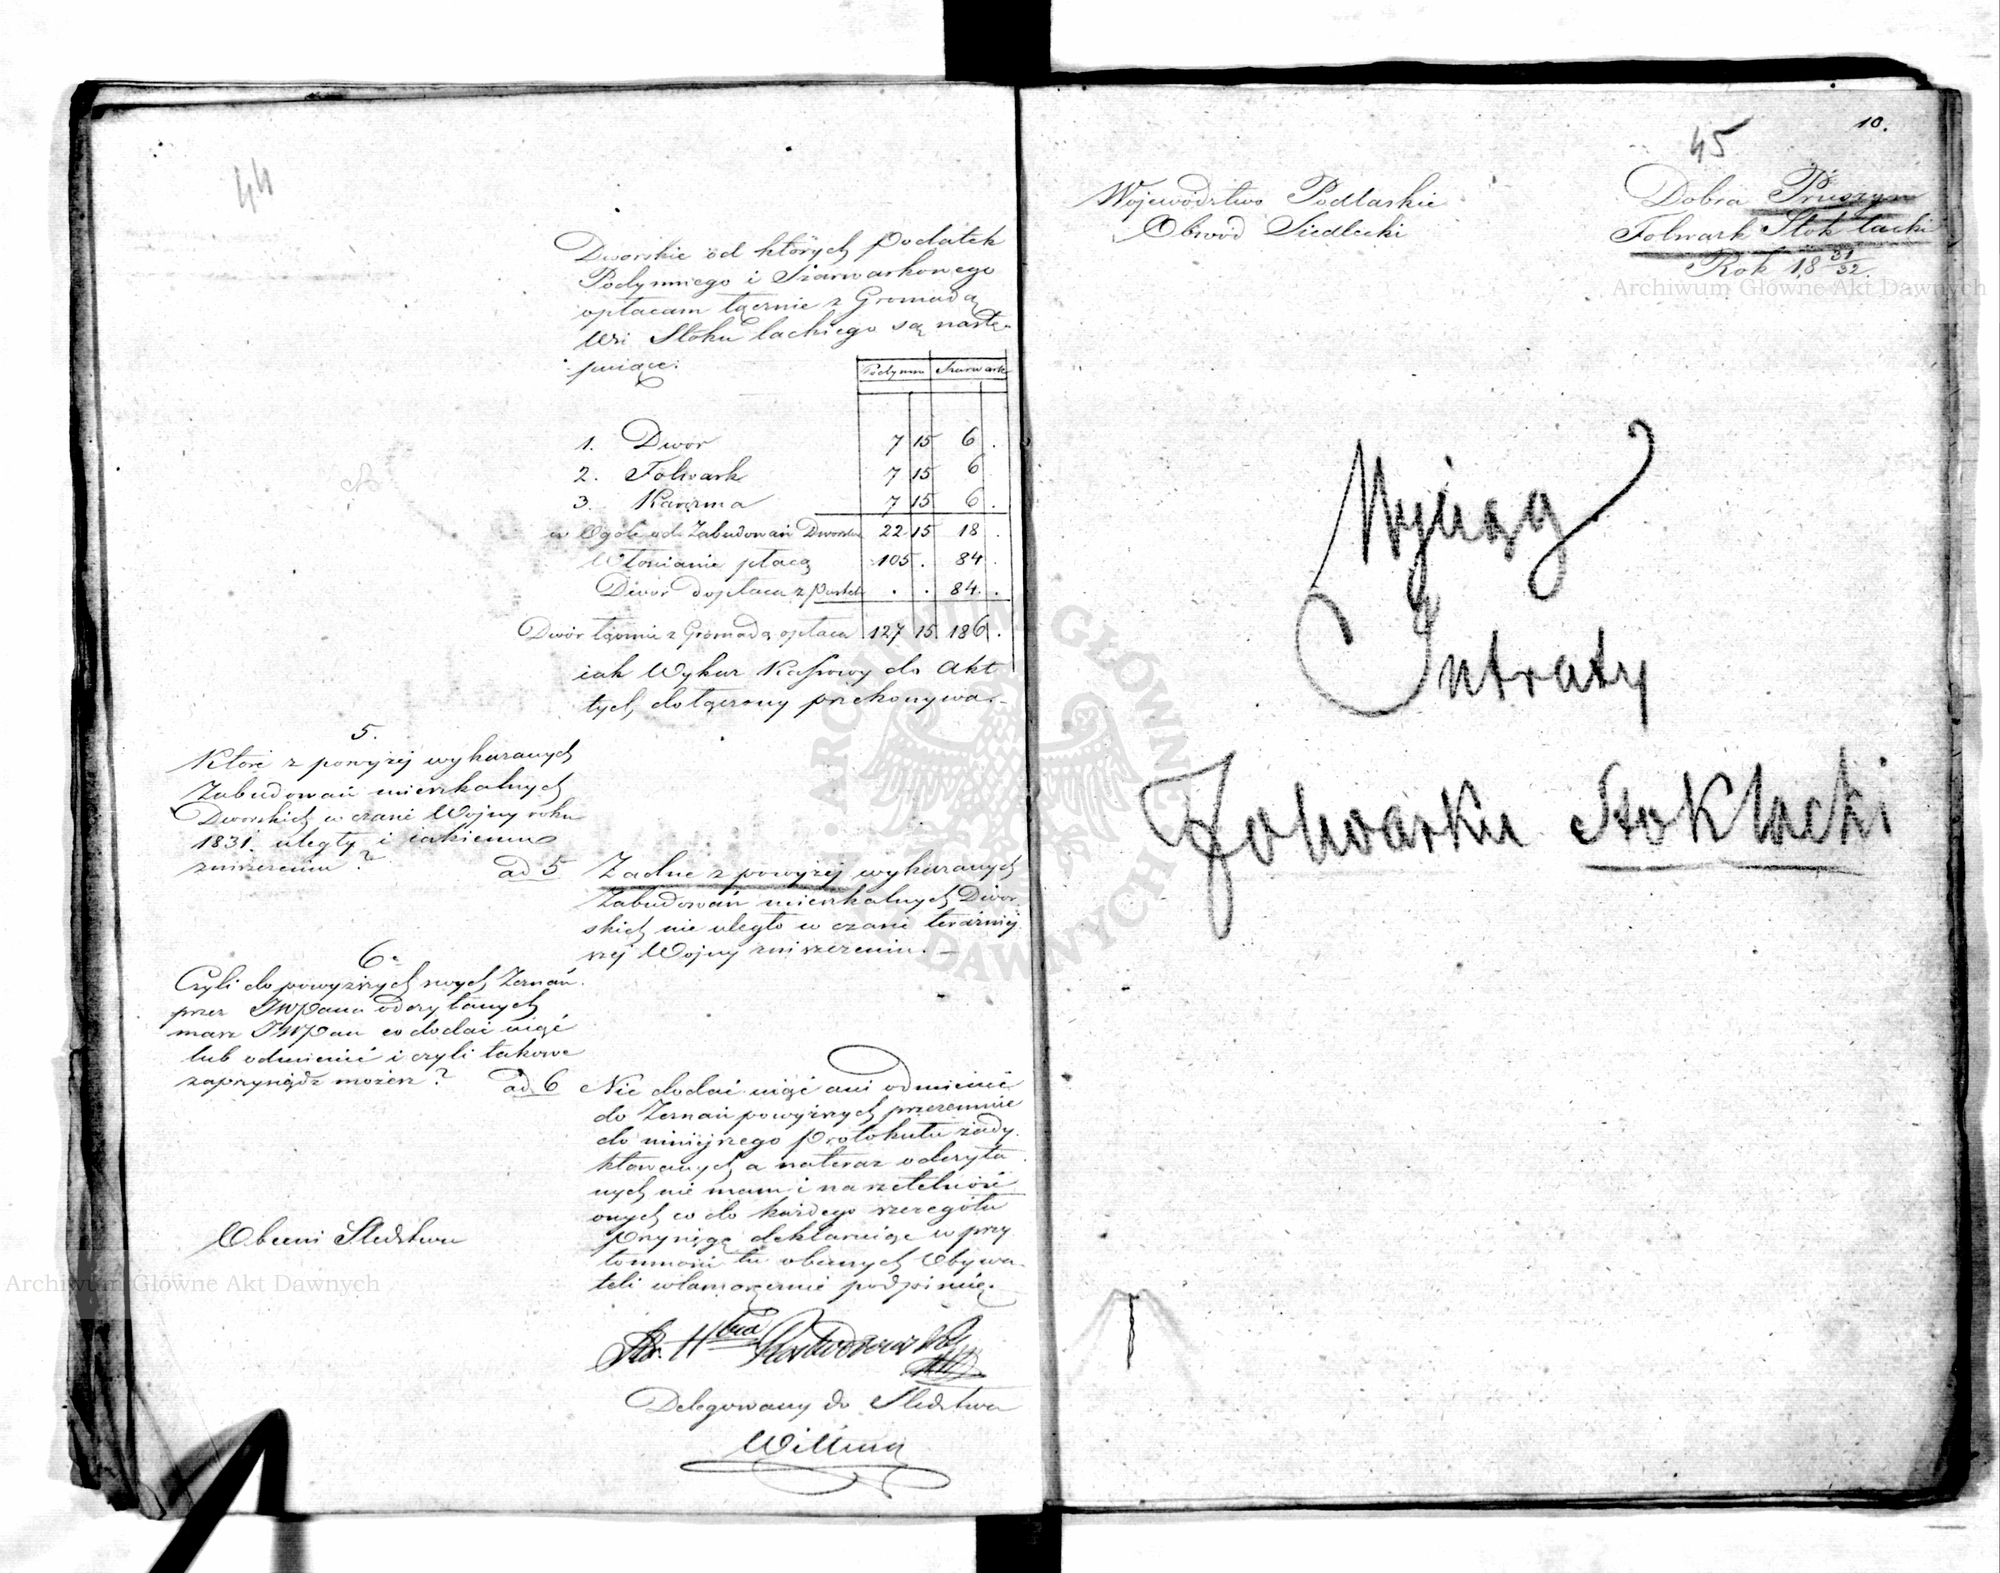 44
Dworskie od których podatek
Podymnego i Szarwarkowego
opłacam łącznie z Gromadą
Wsi Stoku lackiego są nastę-
puiące:
Podymne Szarwark
1. Dwor 7 15 6 .
2. Folwark 7 15 6
3. Karczma 7 15 6 .
w Ogóle od Zabudowań Dworsk 22 15 18 .
Włościanie płacą 105 . 84 .
Dwór dopłaca z Pustek . . 84 .
Dwór łącznie z Gromadą opłaca 127 15 186 .
iak Wykaz Kassowy do Akt
tych dołączony przekonywa.-
5.
Które z powyżej wykazanych
Zabudowań mieszkalnych
Dworskich w czasie Wojny roku
1831. uległy i iakiemu
zniszczeniu?
ad 5 Żadne z powyżej wykazanych
Zabudowań mieszkalnych Dwor
skich nie uległo w czasie teraźniey
szej Wojny zniszczeniu. -
6.
Czyli do powyższych swych Zeznań
przez JWPana odczytanych
masz JWPan co dodać, uiąć
lub odmienić i czyli takowe
zaprzysiądz możesz?
ad 6 Nic dodać, uiąć ani odmienić
do Zeznań powyższych przezemnie
do niniejszego protokułu żądy
ktowanych a nateraz odczyta
nych nie mam i na rzetelność
onych co do każdego szczegółu
Przysięgę deklaruiąc w przy
tomności tu obecnych Obywa-
teli własnoręcznie podpisuię.
Obecni Śledztwu
Delegowany do Śledztwa
10.
45
Województwo Podlaskie
Obwód Siedlecki
Dobra Pruszyn
Folwark Stok lacki
Rok 18 31/32.
Wyciąg
Intraty
Folwarku Stok lacki
Archiwum Główne Akt Dawnych
Archiwum Główne Akt Dawnych
ARCHIWUM GŁÓWNE AKT DAWNYCH